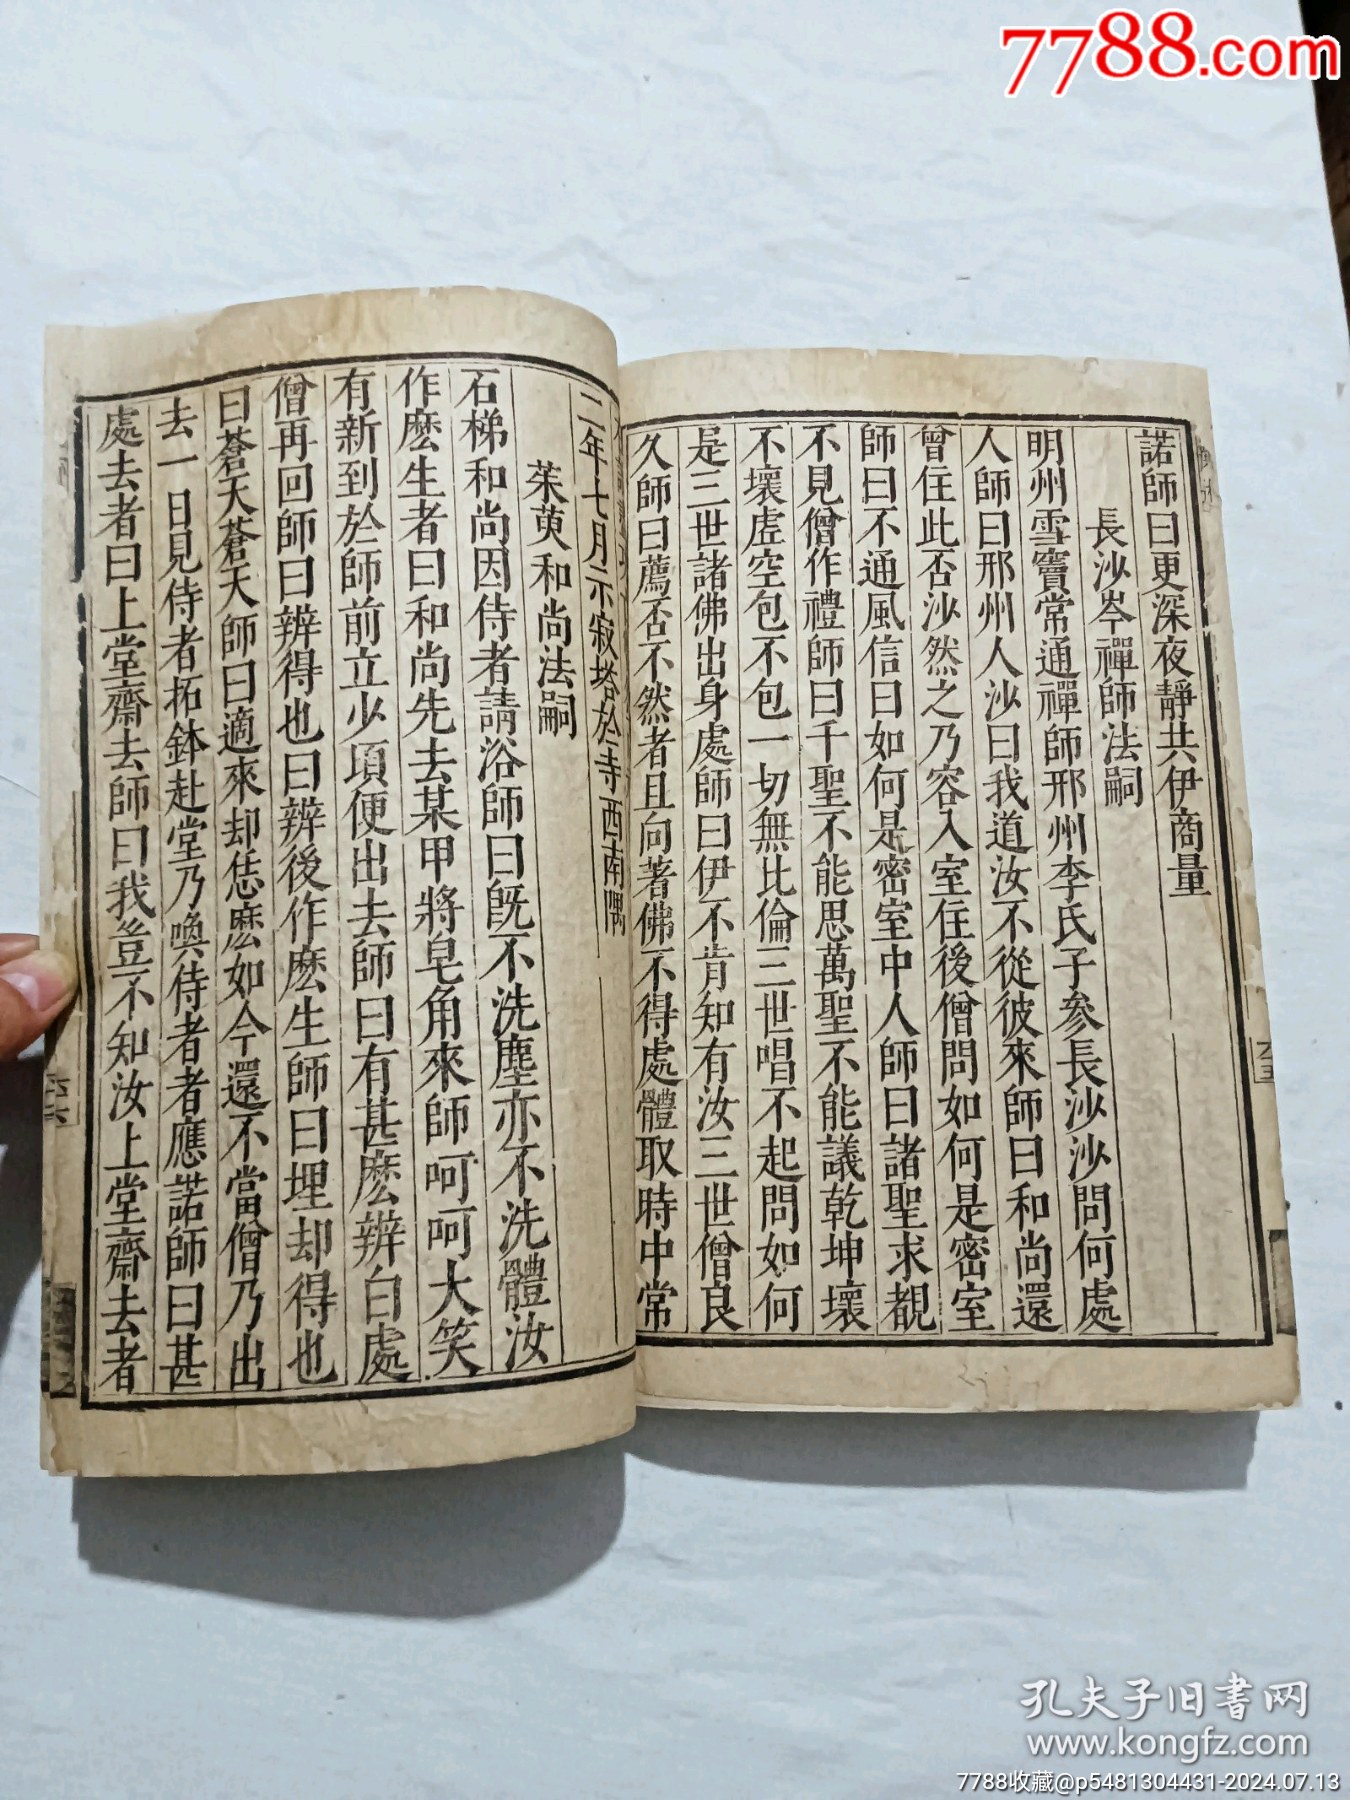 7788.com
諾師曰更深夜靜共伊商量
長沙岑禪師法嗣
明州雪竇常通禪師邢州李氏子參長沙沙問何處
人師曰邢州人沙曰我道汝不從彼來師曰和尚還
曾住此否沙然之乃容入室住後僧問如何是密室
師曰不通風信曰如何是密室中人師曰諸聖求覩
不見僧作禮師曰千聖不能思萬聖不能議乾坤壞
不壞虛空包不包一切無比倫三世唱不起問如何
是三世諸佛出身處師曰伊不肯知有汝三世僧良
久師曰薦否不然者且向著佛不得處體取時中常
二年七月示寂塔於寺西南隅
茱萸和尚法嗣
石梯和尚因侍者請浴師曰旣不洗塵亦不洗體汝
作麽生者曰和尚先去某甲將皂角來師呵呵大笑
有新到於師前立少頃便出去師曰有甚麽辨白處
僧再回師曰辨得也曰辨後作麽生師曰埋却得也
曰蒼天蒼天師曰適來却恁麽如今還不當僧乃出
去一日見侍者拓鉢赴堂乃喚侍者者應諾師曰甚
處去者曰上堂齋去師曰我豈不知汝上堂齋去者
孔夫子旧書网
www.kongfz.com
7788收藏@p5481304431-2024.07.13